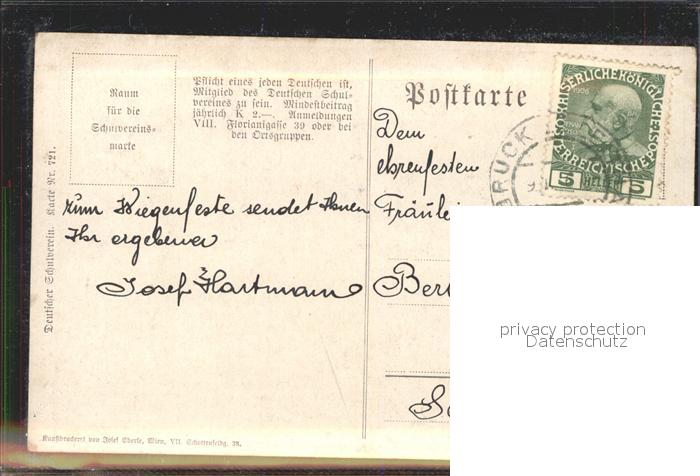 Raum
für die
Schulvereins-
marke
Pflicht eines jeden Deutschen ist,
Mitglied des Deutschen Schul-
vereines zu sein. Mindestbeitrag
jährlich K 2.—. Anmeldungen
VIII. Florianigasse 39 oder bei
den Ortsgruppen.
Deutscher Schulverein. Karte Nr. 721.
zum Wiegenfeste sendet Ihnen
Ihr ergebener
Josef Hartmann
Kunstdruckerei von Josef Eberle, Wien, VII. Schottenfeldg. 38.
Postkarte
Dem
ehrenfesten
Fräulein
Ber
BRUCK
KAISERLICHEKÖNIGLICHE
ÖSTERREICHISCHEPOST
1908
5 HELLER 5
privacy protection
Datenschutz